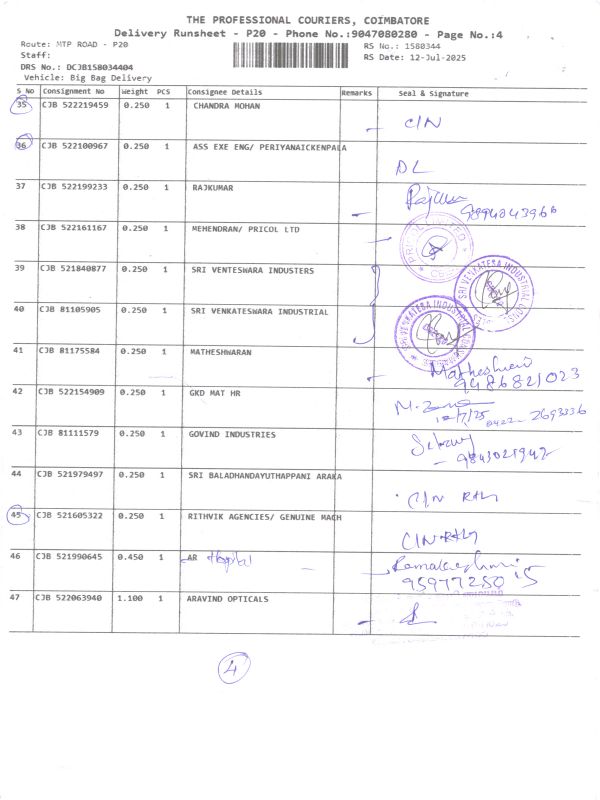 THE PROFESSIONAL COURIERS, COIMBATORE
Delivery Runsheet - P20 - Phone No.:9047080280 - Page No.:4
Route: MTP ROAD - P20 RS No.: 1580344
Staff: RS Date: 12-Jul-2025
DRS No.: DCJB158034404
Vehicle: Big Bag Delivery
S No Consignment No Weight PCS Consignee Details Remarks Seal & Signature
35 CJB 522219459 0.250 1 CHANDRA MOHAN C/N
36 CJB 522100967 0.250 1 ASS EXE ENG/ PERIYANAICKENPALA DL
37 CJB 522199233 0.250 1 RAJKUMAR
38 CJB 522161167 0.250 1 MEHENDRAN/ PRICOL LTD PRICOL LIMITED
39 CJB 521840877 0.250 1 SRI VENTESWARA INDUSTERS SRI VENKATESA INDUSTRIAL
40 CJB 81105905 0.250 1 SRI VENKATESWARA INDUSTRIAL SRI VENKATESA INDUSTRIAL
41 CJB 81175584 0.250 1 MATHESHWARAN 9486821023
42 CJB 522154909 0.250 1 GKD MAT HR 12/7/25 0422-2693336
43 CJB 81111579 0.250 1 GOVIND INDUSTRIES 9843021942
44 CJB 521979497 0.250 1 SRI BALADHANDAYUTHAPPANI ARAKA C/N
45 CJB 521605322 0.250 1 RITHVIK AGENCIES/ GENUINE MACH C/N
46 CJB 521990645 0.450 1 AR Hospital 9597725015
47 CJB 522063940 1.100 1 ARAVIND OPTICALS
4